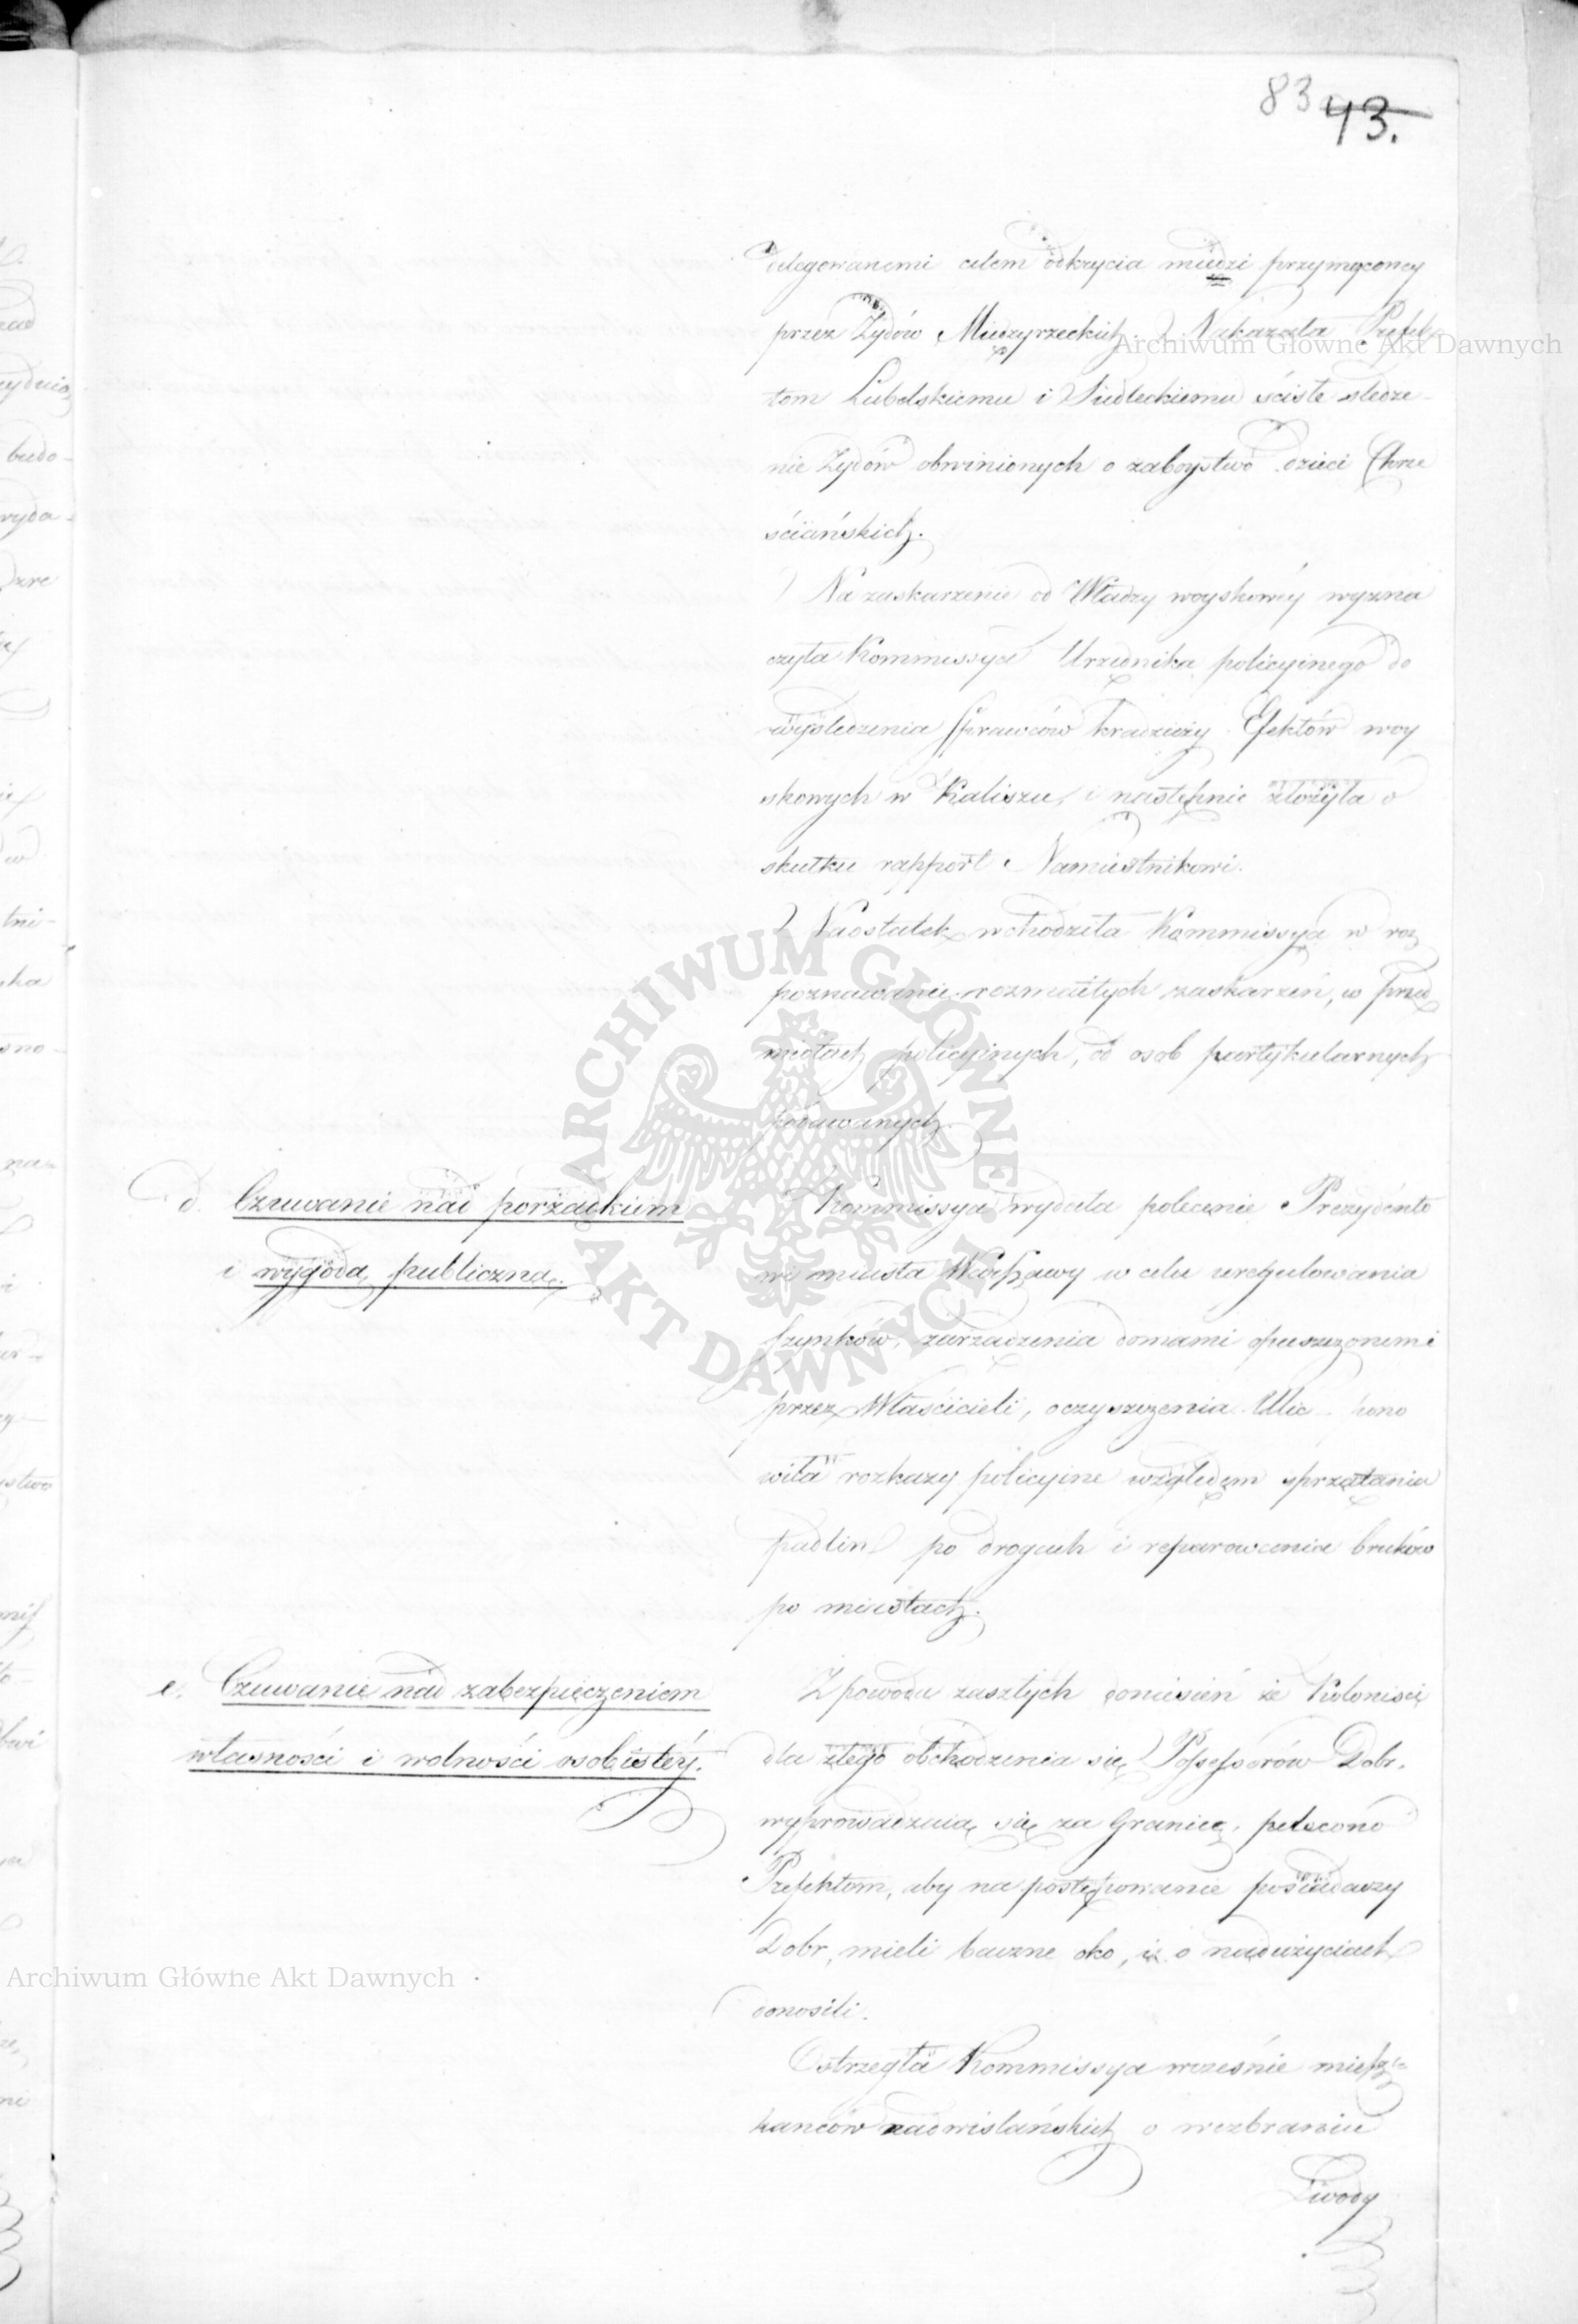 83 43.
delegowanemi celem odkrycia miedzi przymyconey
przez Żydów Międzyrzeckich. Nakazała Prefek
tom Lubelskiemu i Siedleckiemu ściste sledze-
nie Żydów obwinionych o zaboystwo dzieci Chrze
ściańskich.
Na zaskarzenie od Władzy woyskowéy wyzna
czyła Kommissya Urzędnika policyinego do
wyśledzenia Sprawców kradzieży Efektów woy
skowych w Kaliszu, i następnie złożyła o
skutku rapport Namiestnikowi.
Naostatek wchodziła Kommissya w roz
poznawanie rozmaitych zaskarzeń, w przed
miotach policyinych, od osob partykularnych
podawanych.
d. Czuwanie nad porządkiem
i wygodą publiczną.
Kommissya wydała polecenie Prezydento
wi miasta Warszawy w celu uregulowania
szynków, zarządzenia domami opuszczonemi
przez Właścicieli, oczyszczenia Ulic pono
wiła rozkazy policyine względem sprzątania
padlin po drogach i reparowania bruków
po miastach.
e. Czuwanie nad zabezpieczeniem
własności i wolności osobistéy.
Z powodu zaszłych doniesień że Koloniści
dla złego obchodzenia się Possessorów Dobr,
wyprowadzaią się za Granicę, polecono
Prefektom, aby na postępowanie posiadaczy
Dobr, mieli baczne oko, i o nadużyciach
donosili.
Ostrzegła Kommissya wcześnie miesz-
kanców nadwislańskich o wezbraniu
wody
Archiwum Główne Akt Dawnych
ARCHIWUM GŁÓWNE AKT DAWNYCH
Archiwum Główne Akt Dawnych